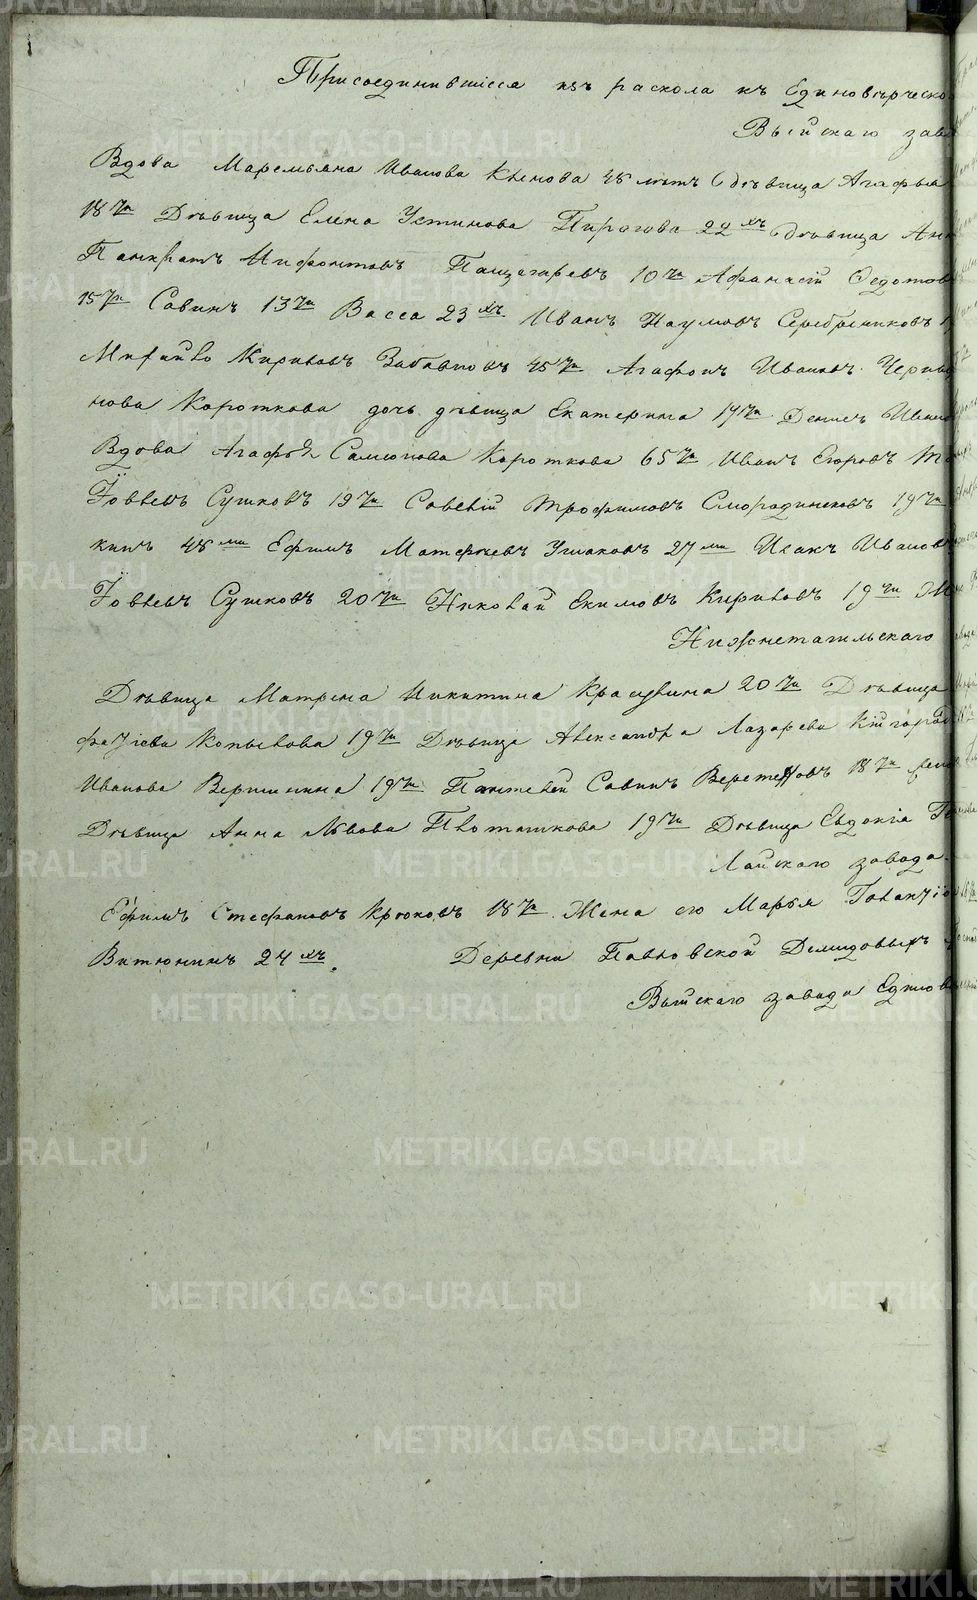 Присоединившіеся изъ раскола къ Единовѣрческо
Выйскаго зав
Вдова Маремьяна Иванова Клюнова 48 лѣтъ дѣвица Агафья
18ти Дѣвица Елена Устинова Пирогова 22хъ дѣвица Анн
Панкратъ Мифонтовъ Панцагаревъ 10ти Афанасій Федотов
15ти Савинъ 13ти Васса 23хъ Иванъ Наумовъ Серебряниковъ
Михайло Кириловъ Забѣлинъ 45ти Агафонъ Ивановъ Черны
нова Короткова дочь дѣвица Екатерина 19ти Денисъ Ивано
Вдова Агафья Самсонова Короткова 65ти Иванъ Егоровъ
Іовлевъ Сушковъ 19ти Савелій Трофимовъ Смородинсковъ 19ти
кинъ 48ми Ефимъ Матфѣевъ Ушаковъ 27ми Исакъ Иванов
Іовлевъ Сушковъ 20ти Николай Екимовъ Кириловъ 19ти
Нижнетагильскаго
Дѣвица Матрена Никитина Красухина 20ти Дѣвица
Копылова 19ти Дѣвица Александра Лазарева
Иванова Вершинина 19ти Пантелей Савинъ Веретеновъ 18ти
Дѣвица Анна Львова Плоташкова 19ти Дѣвица Евдокія
Лайскаго завода
Ефимъ Стефановъ Крюковъ 18ти Жена его Марья
Витюнинъ 24хъ. Деревни Павловской Демидовыхъ
Выйскаго завода Единов